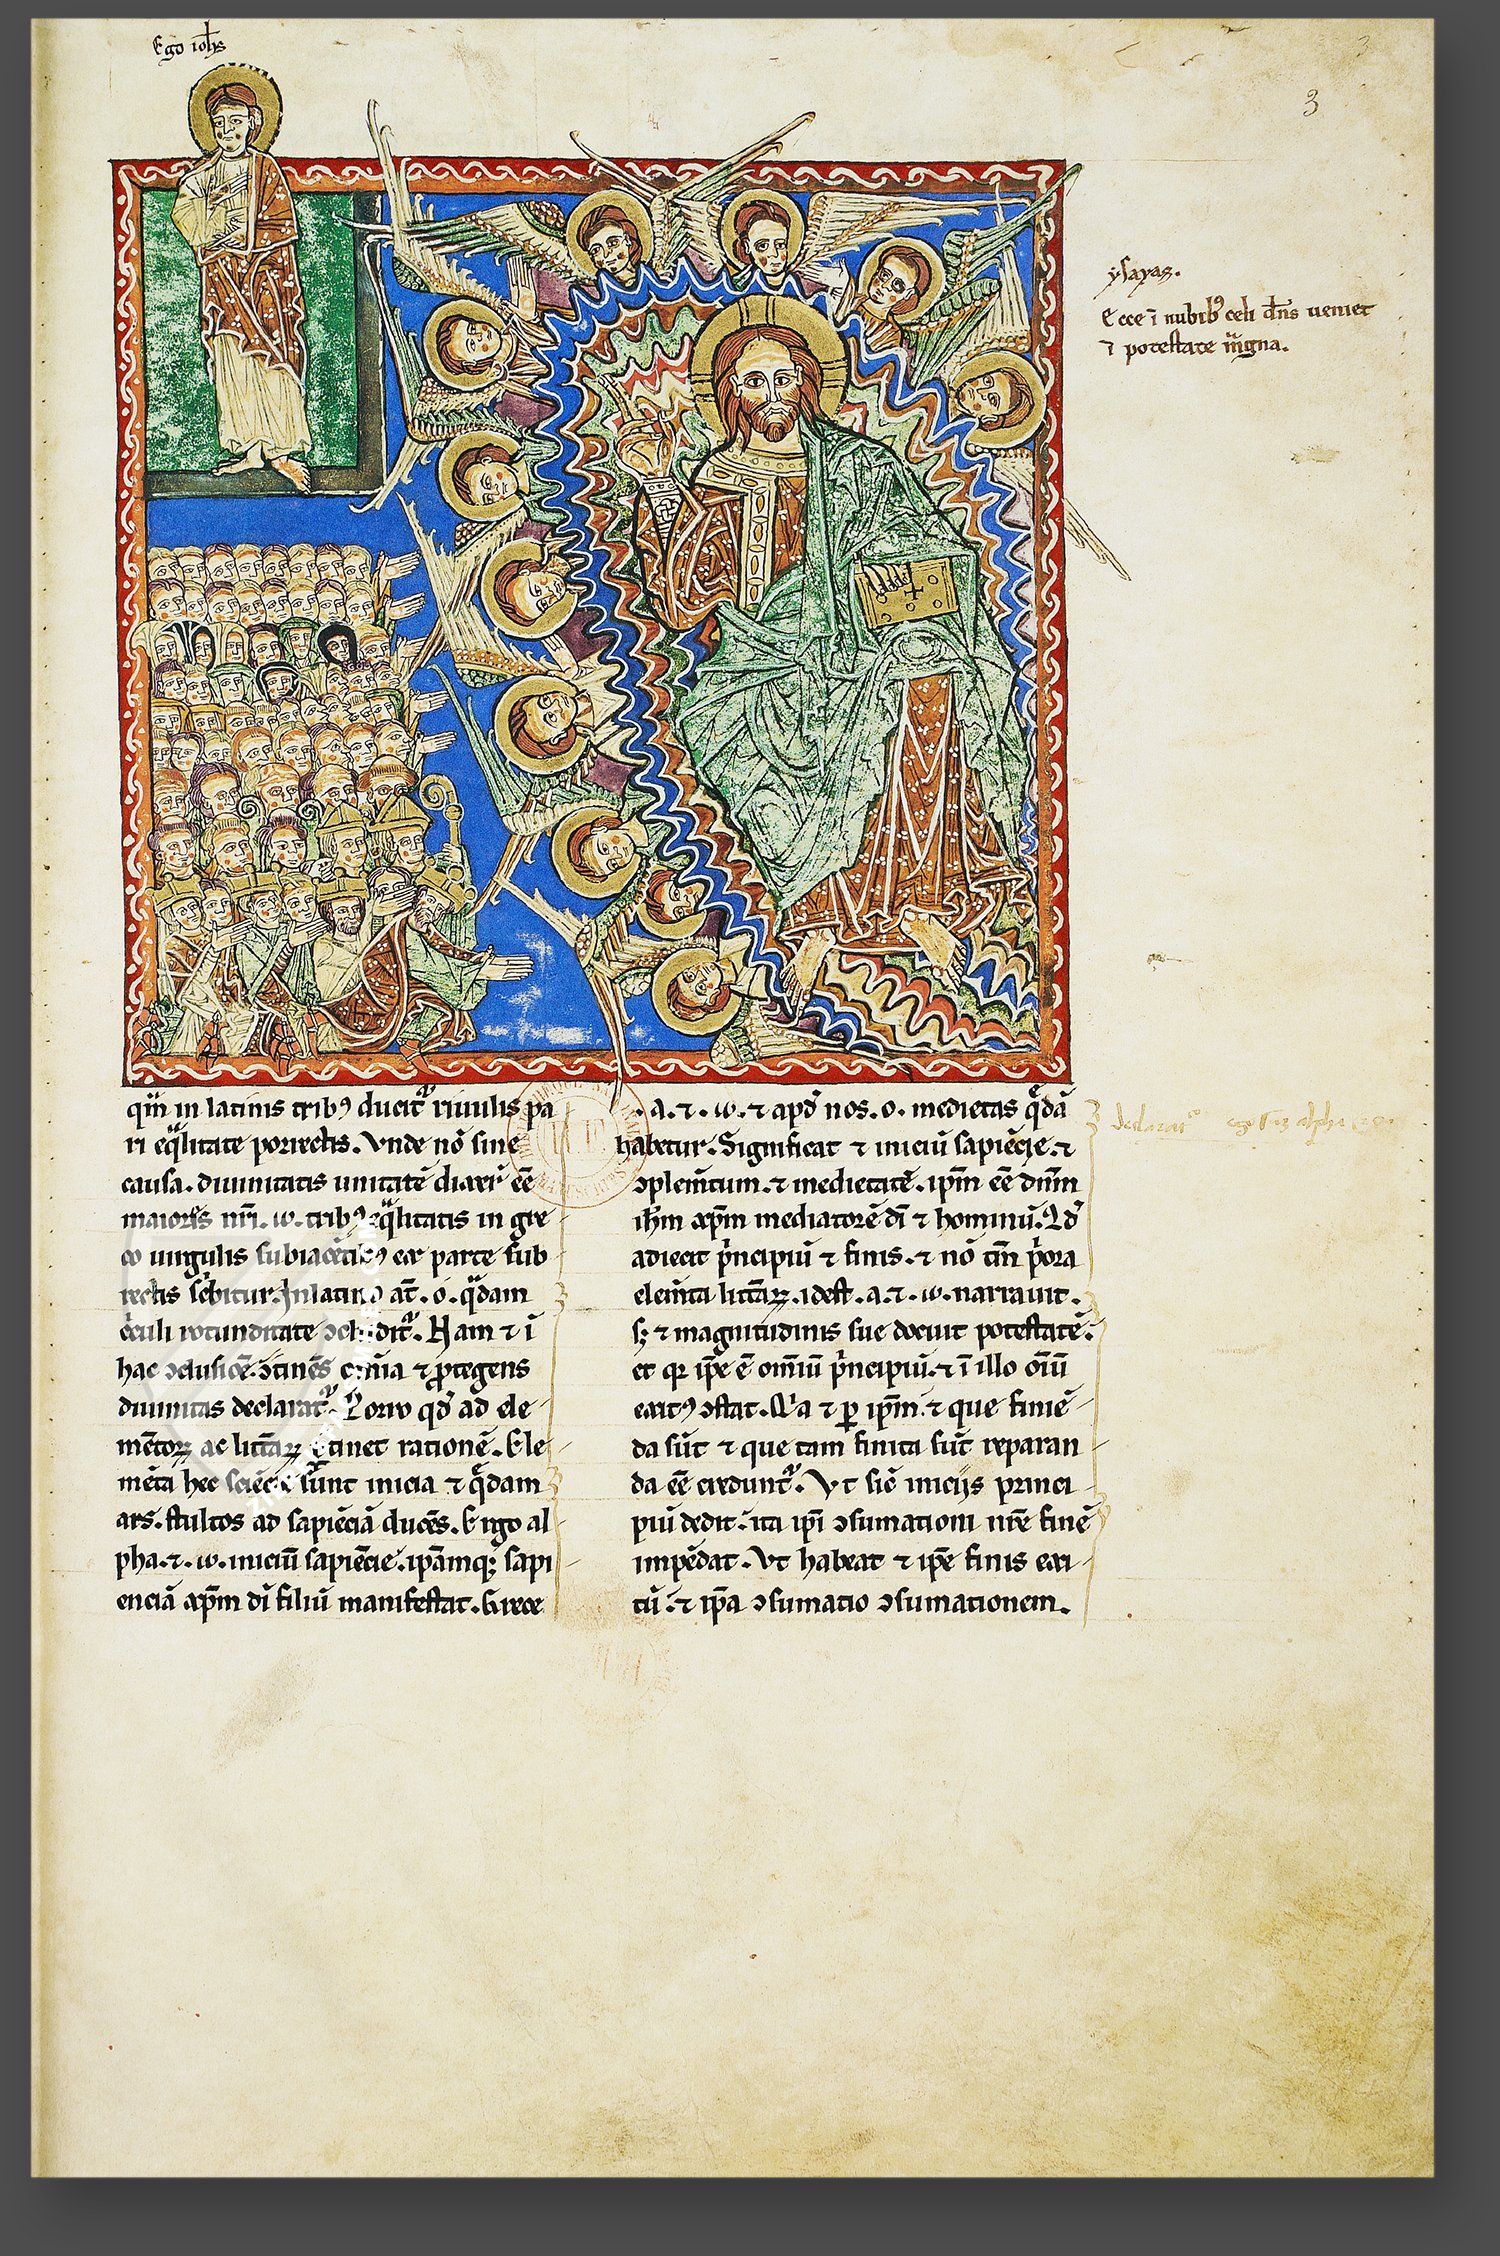 Ego ioh̅s
3
ysayas.
Ecce ī nubib; celi dn̅s ueniet
ī potestate mīgna.
qm̅ in latinis tribꝰ ducit᷑ riuulis pa
ri eq̅litate porrectis. Vnde nō sine
causa. diuinitatis unitatē dixer̅ ēē
maioris nr̅i. ω. tribꝰ eq̅litatis in gre
co uirgulis subiacētibꝰ ex parte sub
rectis sc̅bitur. In latino at̅. o. q̅dam
cculi rotunditate ↄcludit᷑. Nam ⁊ ī
hac ↄclusiōe. ↄtinēs om̅ia ⁊ ꝓtegens
diuinitas declarat᷑. Porro qd̅ ad ele
mētoꝝ ac litt̅aꝝ ꝑtinet rationē. Ele
mēta hec sciēcie sūnt inicia ⁊ q̅dam
ars. stultos ad sapiēciā ducēs. Ergo al
pha. ⁊. ω. iniciū sapiēcie. ipāmq; sapi
enciā xp̅m dī filiū manifestat. Grece
. a. ⁊. ω. ⁊ apd̅ nos. o. medietas q̅dā
habetur. Significat ⁊ iniciū sapiēcie. ⁊
ↄplem̅tum. ⁊ medietatē. ipm̅ ēē dnm̅
ih̅m xp̅m mediatorē dī ⁊ hominū. Qd̅
adiecit p̅ncipiū ⁊ finis. ⁊ nō tm̅ p̅ora
elem̅ta litt̅aꝝ. idest. a. ⁊. ω. narrauit.
sꝫ ⁊ magnitudinis sue docuit potestatē.
et qr ip̅e ē om̅iū p̅ncipiū. ⁊ ī illo oīū
exitꝰ ↄstat. Q̅a ⁊ ꝑ ip̅m. ⁊ que finiē
da sūt ⁊ que tam finita sūt reparan
da ēē credunt᷑. Vt sic̅ iniciis princi
piū dedit. ita ip̅i ↄsumationi nr̅e finē
impēdat. Vt habeat ⁊ ip̅e finis exi
tū. ⁊ ip̅a ↄsumatio ↄsumationem.